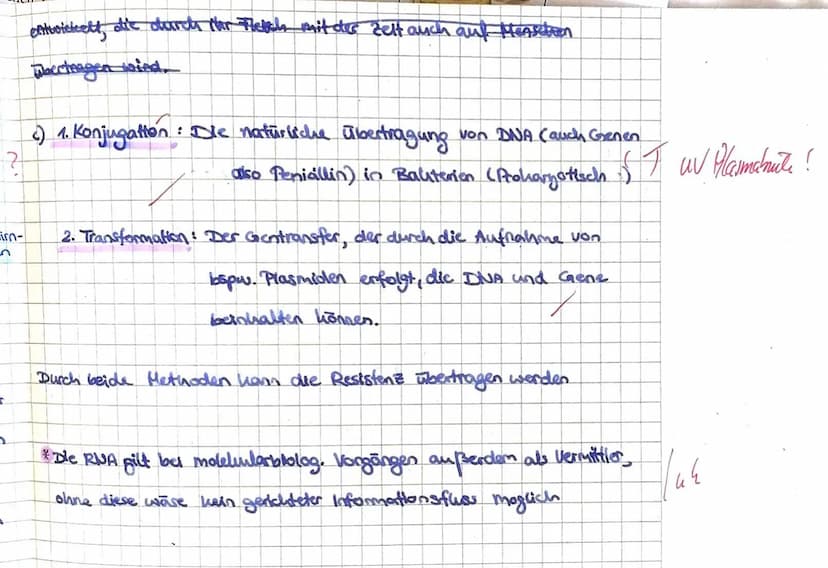 entwickelt, die durch ihr Fleisch mit der Zeit auch auf Menschen
übertragen wird.
c) 1. Konjugation : Die natürliche Übertragung von DNA (auch Genen
?
also Penicillin) in Bakterien (Prokaryotisch :)
T
2. Transformation : Der Gentransfer, der durch die Aufnahme von
irn-
n
bspw. Plasmiden erfolgt, die DNA und Gene
beinhalten können.
Durch beide Methoden kann die Resistenz übertragen werden
*Die RNA gilt bei molekularbiolog. Vorgängen außerdem als Vermittler,
ohne diese wäre kein gerichteter Informationsfluss möglich